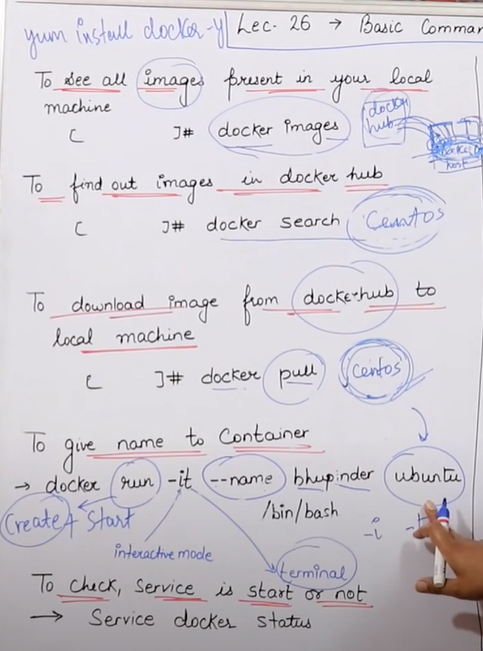 yum install docker -y
Lec. 26 → Basic Comman
To see all images present in your local
machine
[ ]# docker images
docker
hub
To find out images in docker hub
[ ]# docker search Centos
To download image from docker-hub to
local machine
[ ]# docker pull Centos
To give name to Container
→ docker run -it --name bhupinder ubuntu
/bin/bash
Create + Start
-i -t
interactive mode
terminal
To Check, Service is start or not
→ Service docker status